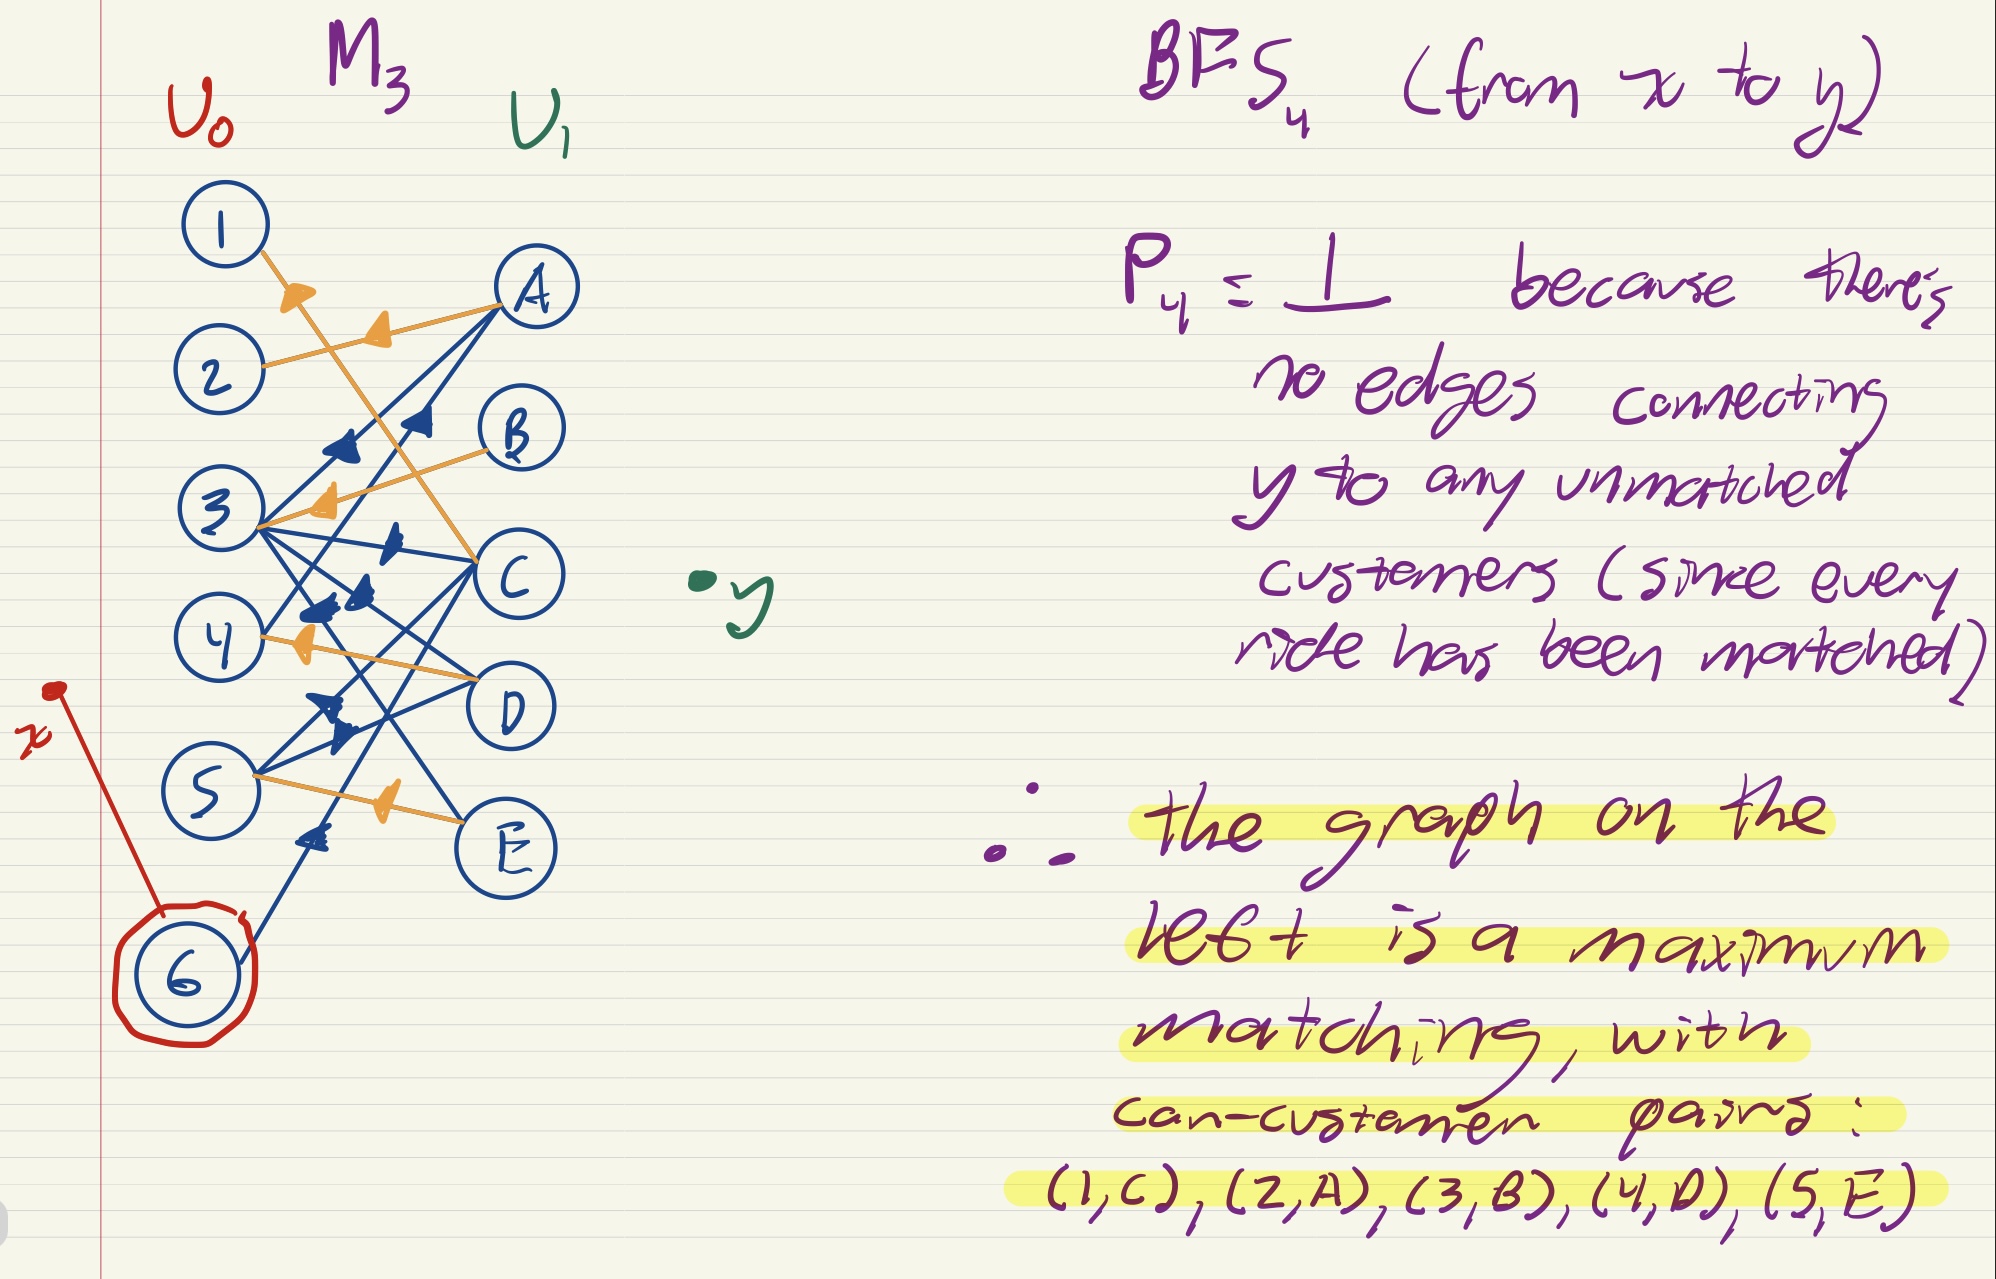 M₃
U₀ U₁
1
A
2
B
3
C
y
4
D
x
5
E
6
BFS₄ (from x to y)
P₄ = ⊥ because there's
no edges connecting
y to any unmatched
customers (since every
ride has been matched)
∴ the graph on the
left is a maximum
matching, with
car-customer pairs:
(1,C), (2,A), (3,B), (4,D), (5,E)